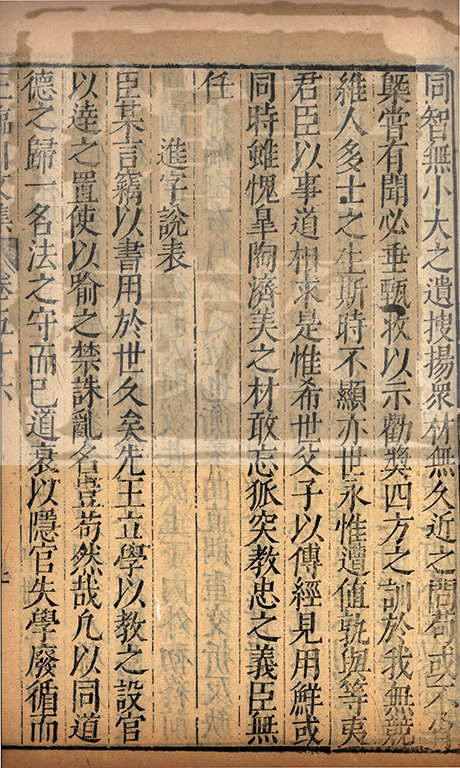 同智無小大之遺搜揚衆材無久近之間苟或不肖
與嘗有聞必垂甄敘以示勸奬四方之訓於我無競
維人多士之生斯時不顯亦世永惟遭值孰與等夷
君臣以事道相求是惟希世父子以傳經見用鮮或
同時雖愧臯陶濟美之材敢忘狐突教忠之義臣無
任
進字說表
臣某言竊以書用於世久矣先王立學以教之設官
以達之置使以喻之禁誅亂名豈苟然哉凡以同道
德之歸一名法之守而已道衰以隱官失學廢循而
王臨川文集 卷五十六